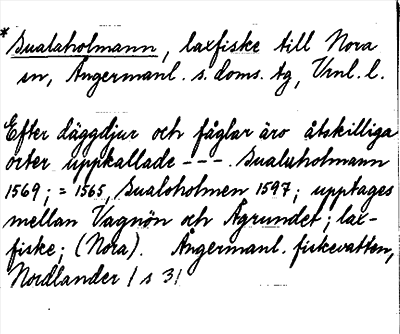 * Sualaholmann, laxfiske till Nora
sn, Ångermanl. s. doms. tg, Vrnl. l.
Efter däggdjur och fåglar äro åtskilliga
orter uppkallade - - - . Sualuholmann
1569; = 1565, Sualoholmen 1597; upptages
mellan Vagnön och Ågrundet; lax-
fiske; (Nora). Ångermanl. fiskevatten,
Nordlander 1 s 31